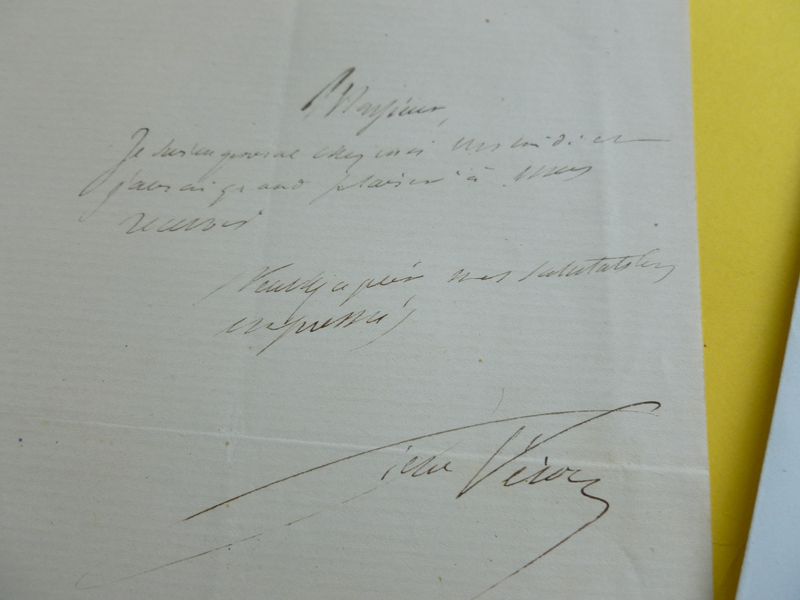 Monsieur,
Je suis en général chez moi vers midi et
j'aurai grand plaisir à vous
recevoir
Veuillez agréer mes salutations
empressées
Véron